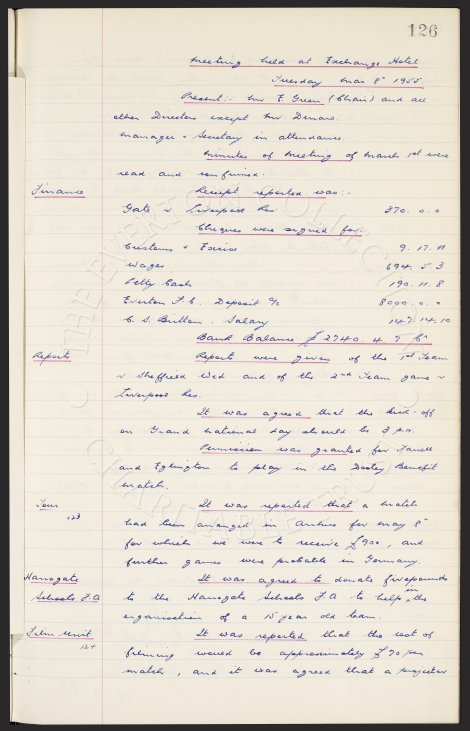 126
Meeting held at Exchange Hotel
Tuesday Mar 8th 1955.
Present:- Mr E. Green (Chair) and all
other Directors except Mr. Dinard.
Manager & Secretary in attendance.
Minutes of Meeting of March 1st were
read and confirmed.
Finance Receipt reported was:-
Gate v. Liverpool Res. 370. 0. 0
Cheques were signed for:
Customs & Excise 9. 17. 11
Wages 694. 5. 3
Petty Cash 190. 11. 8
Everton F.C. Deposit a/c 8000. 0. 0
C. S. Britton. Salary 147. 14. 10
Bank Balance £2740. 4. 7
Reports Reports were given of the 1st Team
v Sheffield Wed and of the 2nd Team game v
Liverpool Res.
It was agreed that the kick-off
on Grand National day should be 3 p.m.
Permission was granted for Farrell
and Eglington to play in the Dooley Benefit
match.
Tour 123 It was reported that a match
had been arranged in for May 8th
for which we were to receive £900, and
further games were probable in Germany.
Harrogate It was agreed to donate five pounds
Schools F.A to the Harrogate Schools F.A to help in the
organisation of a 15 year old team.
Film Unit 124 It was reported that the cost of
filming would be approximately £70 per
match, and it was agreed that a projector
THE EVERTON COLLECTION
CHARITABLE TRUST